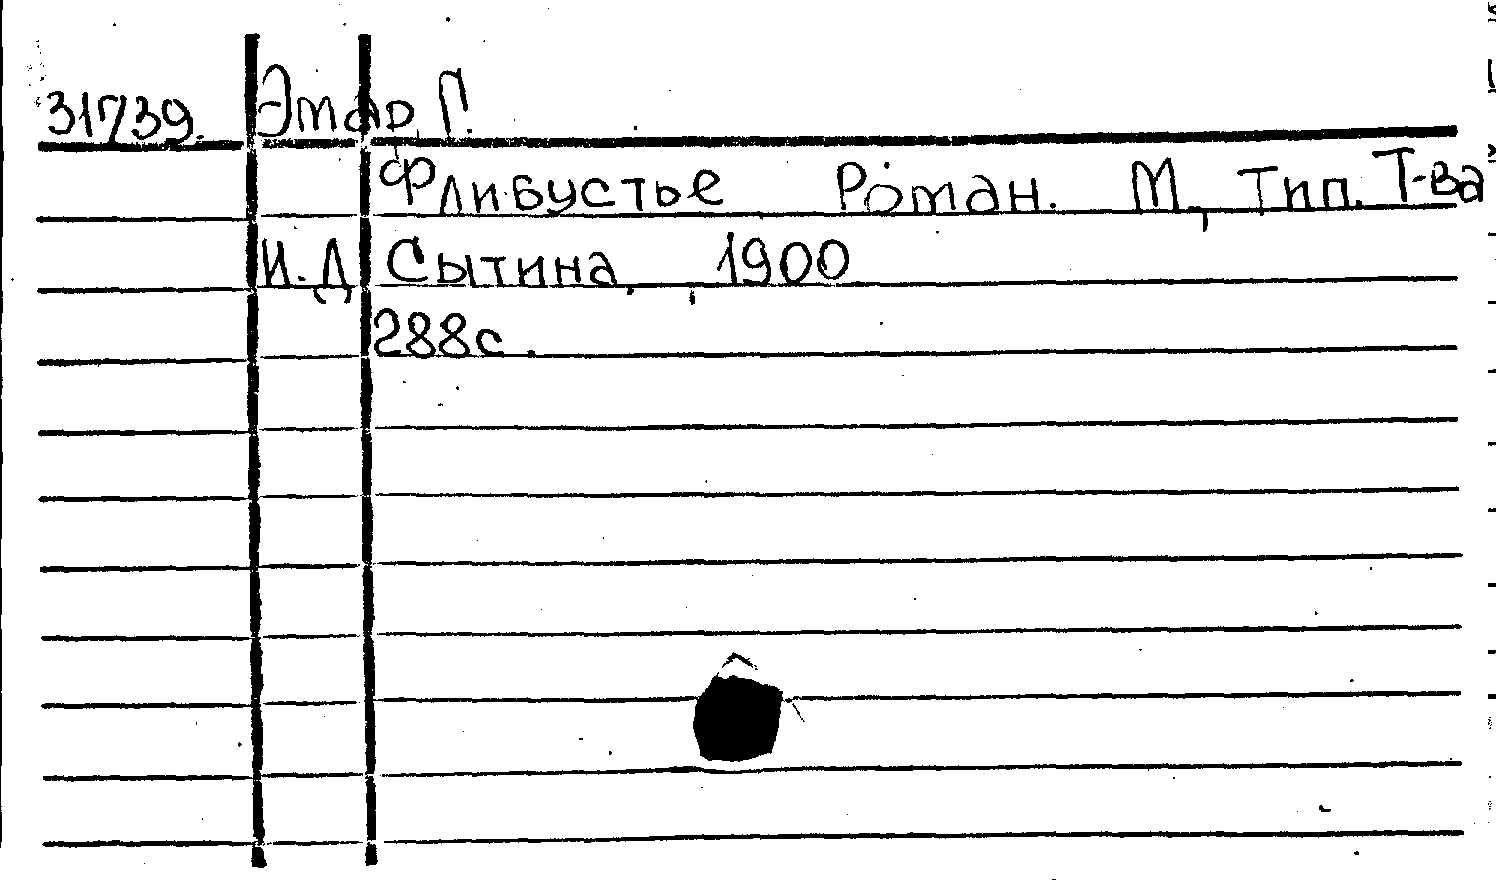 31739. Эмар, Г.
Флибустье Роман. М., Тип. Т-ва
И. Д. Сытина, 1900
288с.